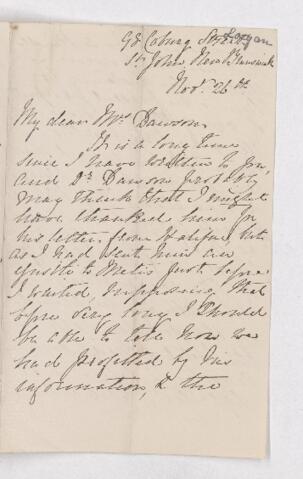 98 Coburg St
Logan
St. John, New Brunswick
Nov. 26th
My dear Mrs Dawson
It is a long time
since I have written to you,
and Dr Dawson probably
may think that I might
have thanked him for
his letter from Halifax, but
as I had sent him
to Metis just before
I started, supposing that
before very long I should
be able to tell how we
had profitted by his
information, & the